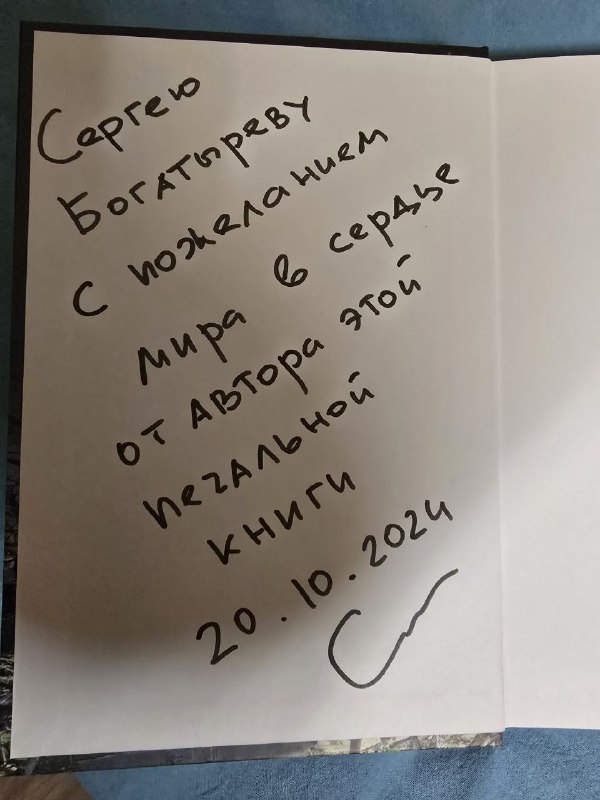 Сергею
Богатыреву
с пожеланием
мира в сердце
от автора этой
печальной
книги
20.10.2024